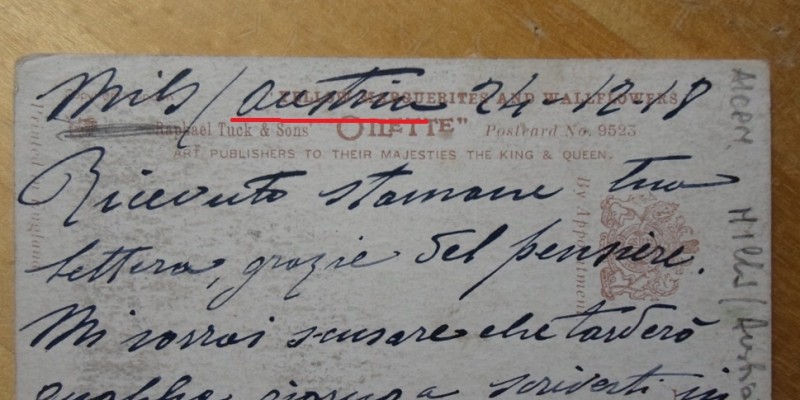 Mils / Austria 24-12-18
YELLOW MARGUERITES AND WALLFLOWERS
Raphael Tuck & Sons' "OILETTE" Postcard No. 9523
ART PUBLISHERS TO THEIR MAJESTIES THE KING & QUEEN.
Ricevuto stamane tua
lettera, grazie del pensiere.
Mi vorrai scusare che tarderò
qualche giorno a scriverti in
Printed in England
By Appointment
Mills / Austria